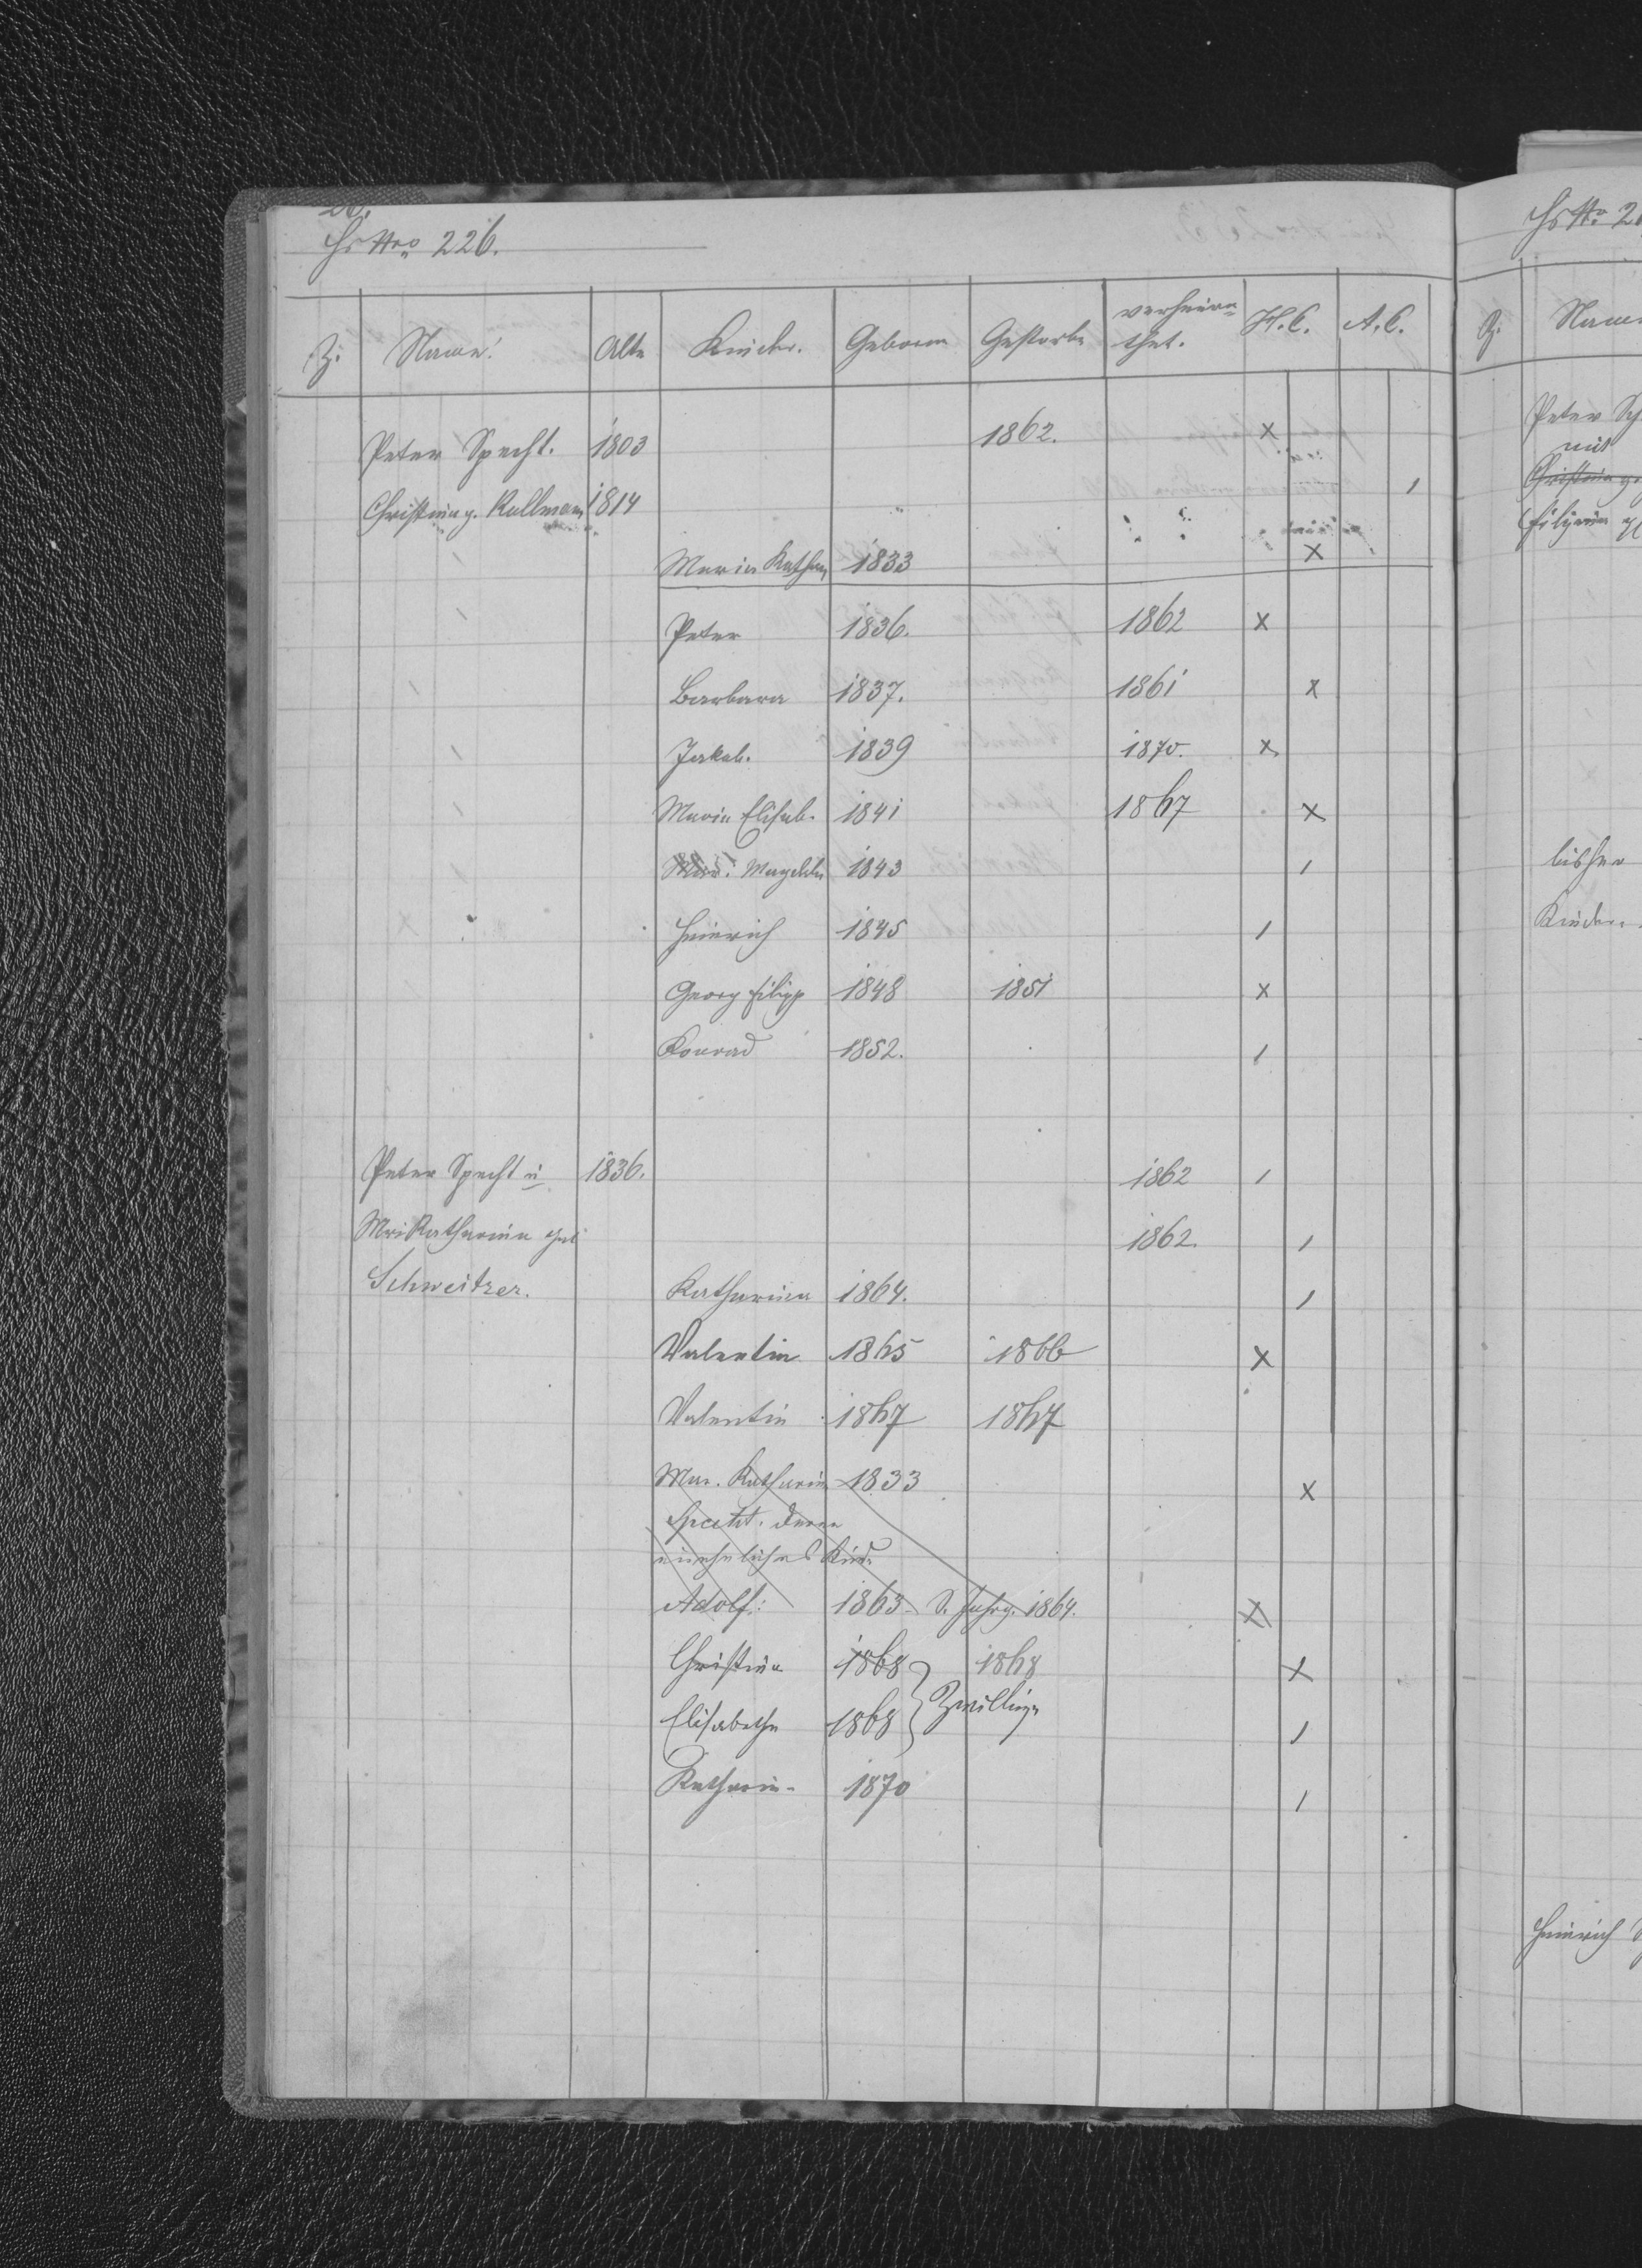 Hs Nro 226.
Z. Name. Alte Kinder. Geboren Gestorbe verheira= H.C. A.C.
thet.
Peter Specht. 1803 1862. x
Christina g. Kullmann 1814 /
Maria Kathar 1833 x
Peter 1836. 1862 x
Barbara 1837. 1861 x
Jakob. 1839 1870. x
Maria Elisab. 1841 1867 x
Magdln 1843 /
Heinrich 1845 /
Georg Filipp 1848 1851 x
Konrad 1852. /
Peter Specht u 1836. 1862 /
Mri Katharina geb 1862. /
Schweitzer. Katharina 1864. /
Valentin 1865 1866 x
Valentin 1867 1867
Mar. Katharin 1833 x
Specht. deren
unehliches Kind.
Adolf: 1863. 1864. x
Christina 1868 1868 x
Elisabetha 1868 } Zwillinge /
Katharin- 1870 /
Hs No 2
Z. Name
Peter Sch
mit
Christina g
Filippina g
bisher
Kinder.
Heinrich